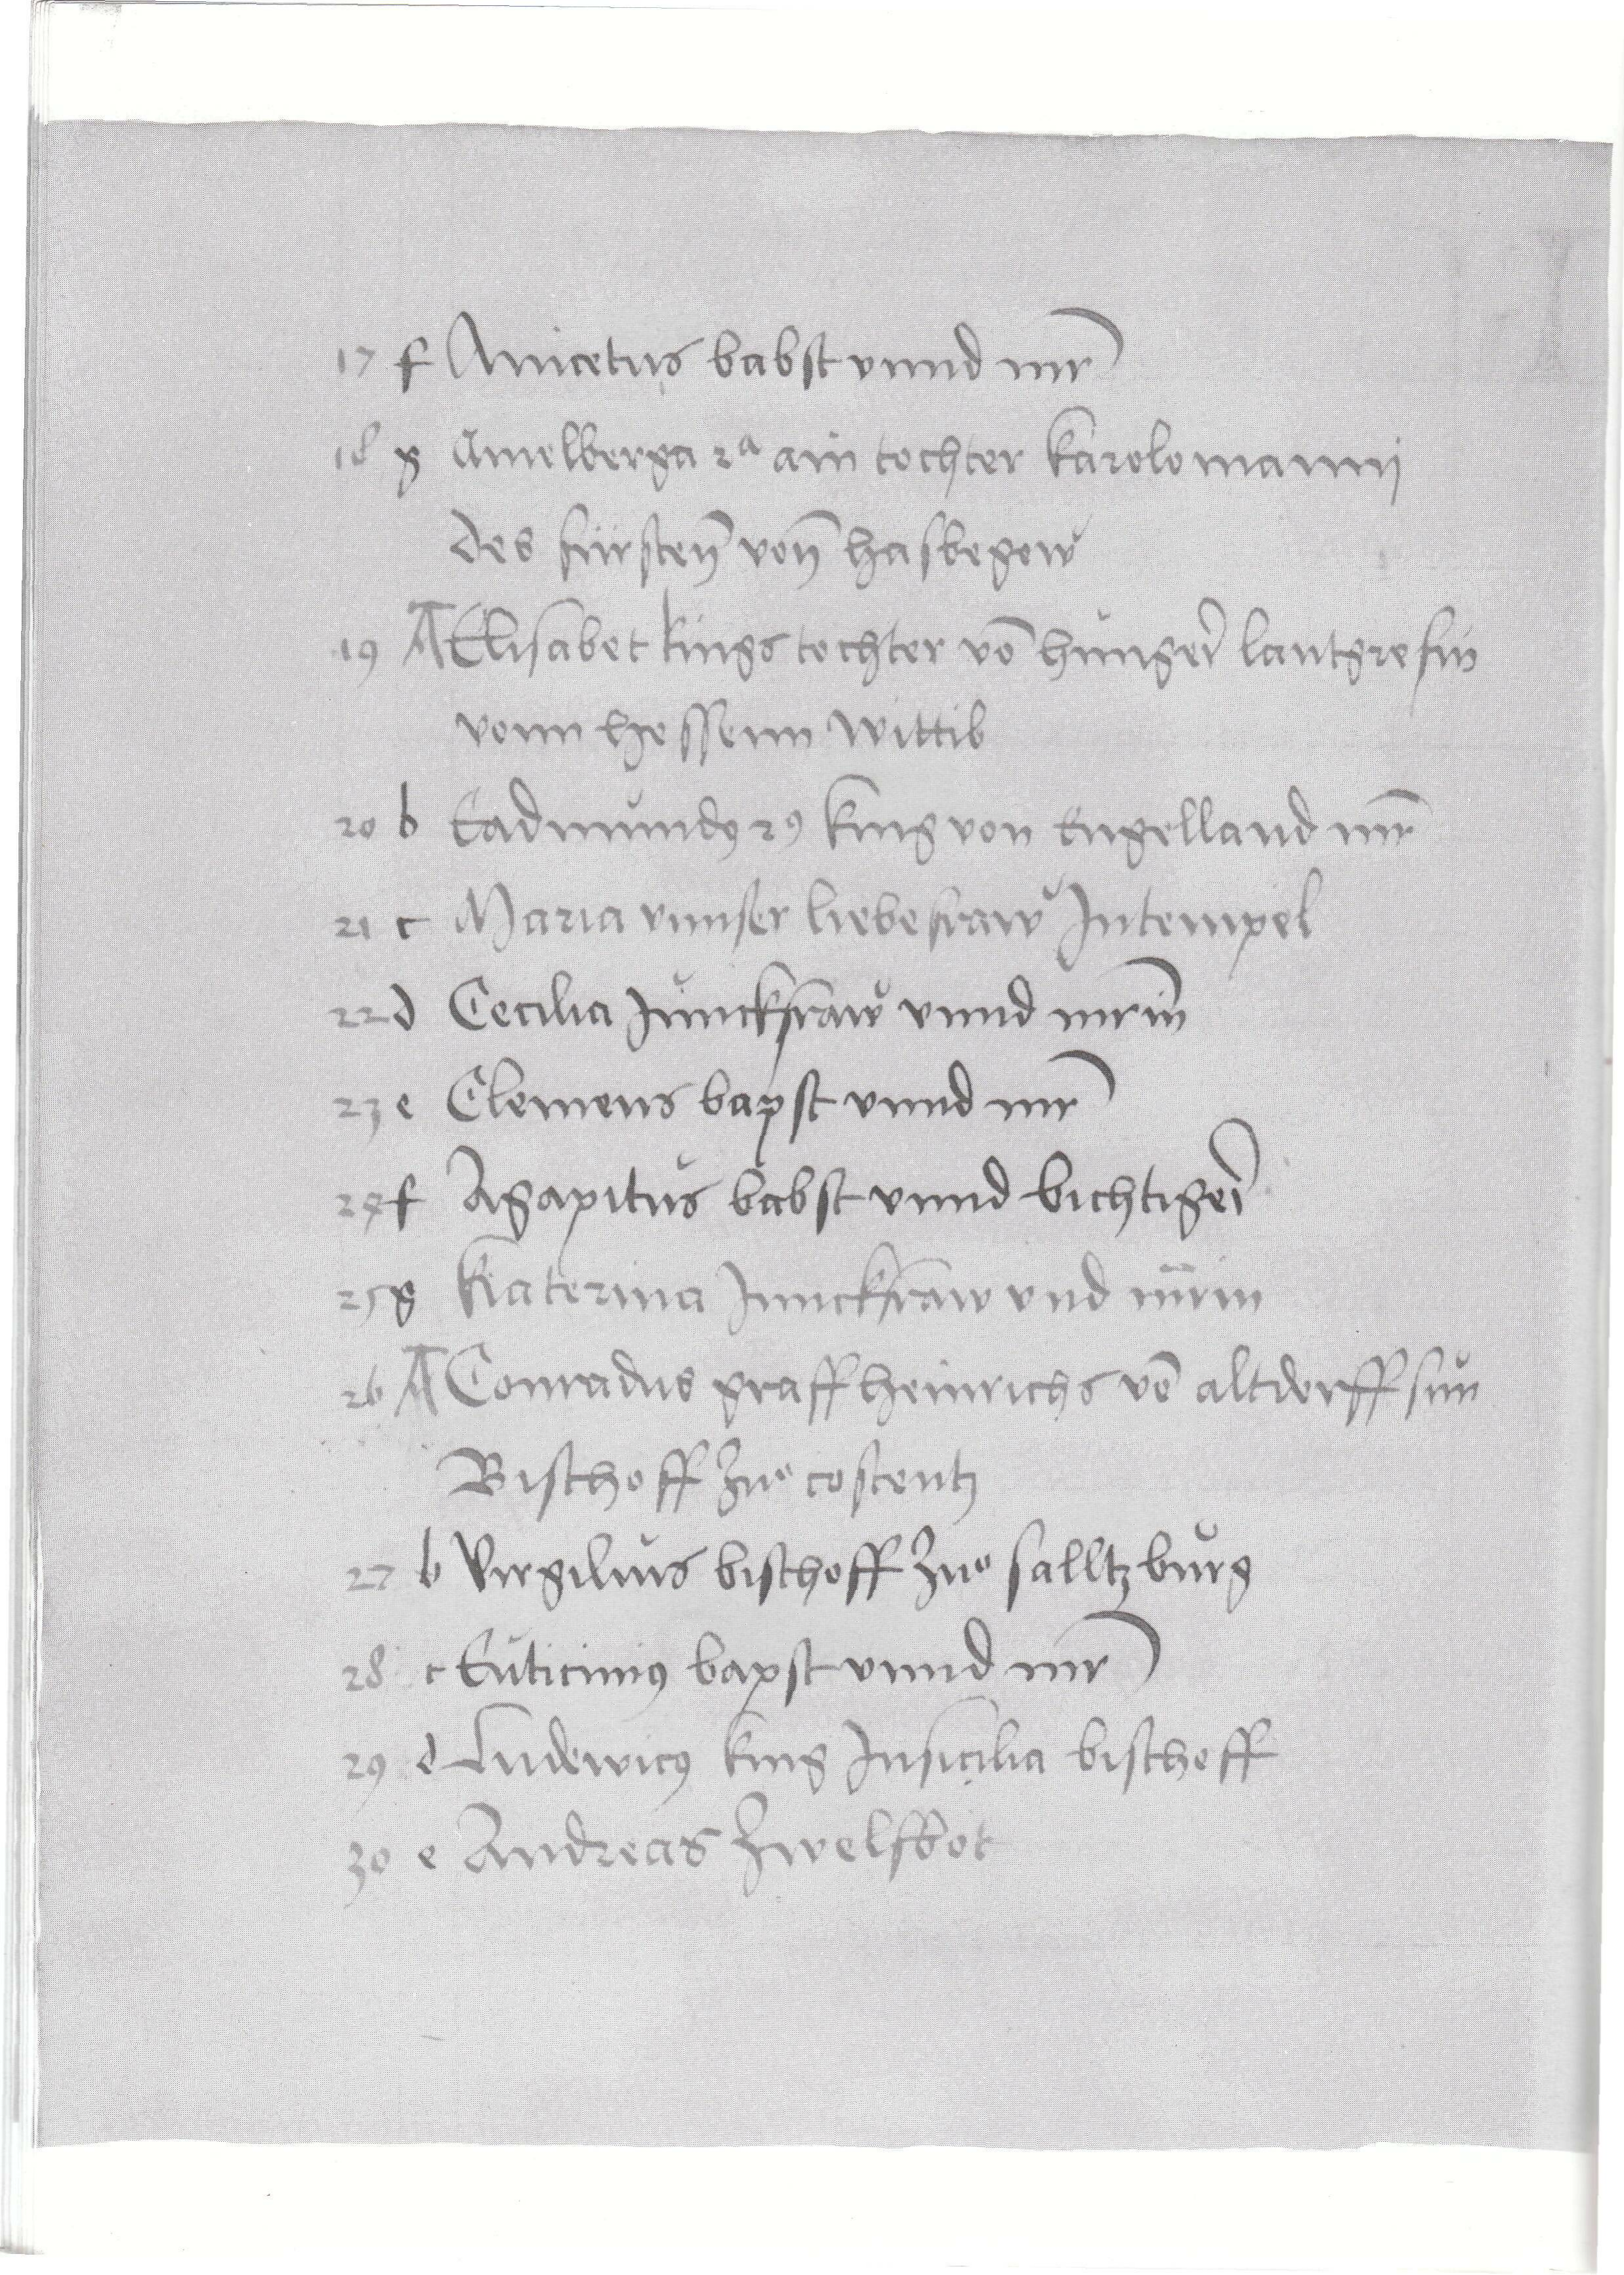 17 f Anicetus babst vnnd mr
18 g Amelberga 2ª ain tochter karolomannj
des fürsten̄ von̄ hasbegow
19 A Elisabet kings tochter vō hunger̄ lantgrefin
vonn hessenn wittib
20 b Eadmundꝰ 2ꝰ king von Engelland mr̄
21 c Maria vnnser liebe fraw Jn tempel
22 d Cecilia Junckfraw vnnd mrin̄
23 e Clemens bapst vnnd mr
24 f Agapitus babst vnnd bichtiger̄
25 g Katerina Junckfraw vnd mr̄in
26 A Conradus graff heinrichs vō altdorff sun
Bischoff zuͦ costentz
27 b Virgilius bischoff zuͦ salltzburg
28 c Euticiniꝰ bapst vnnd mr
29 d Ludewicꝰ king Jn sicilia bischoff
30 e Andreas Zwelfbot